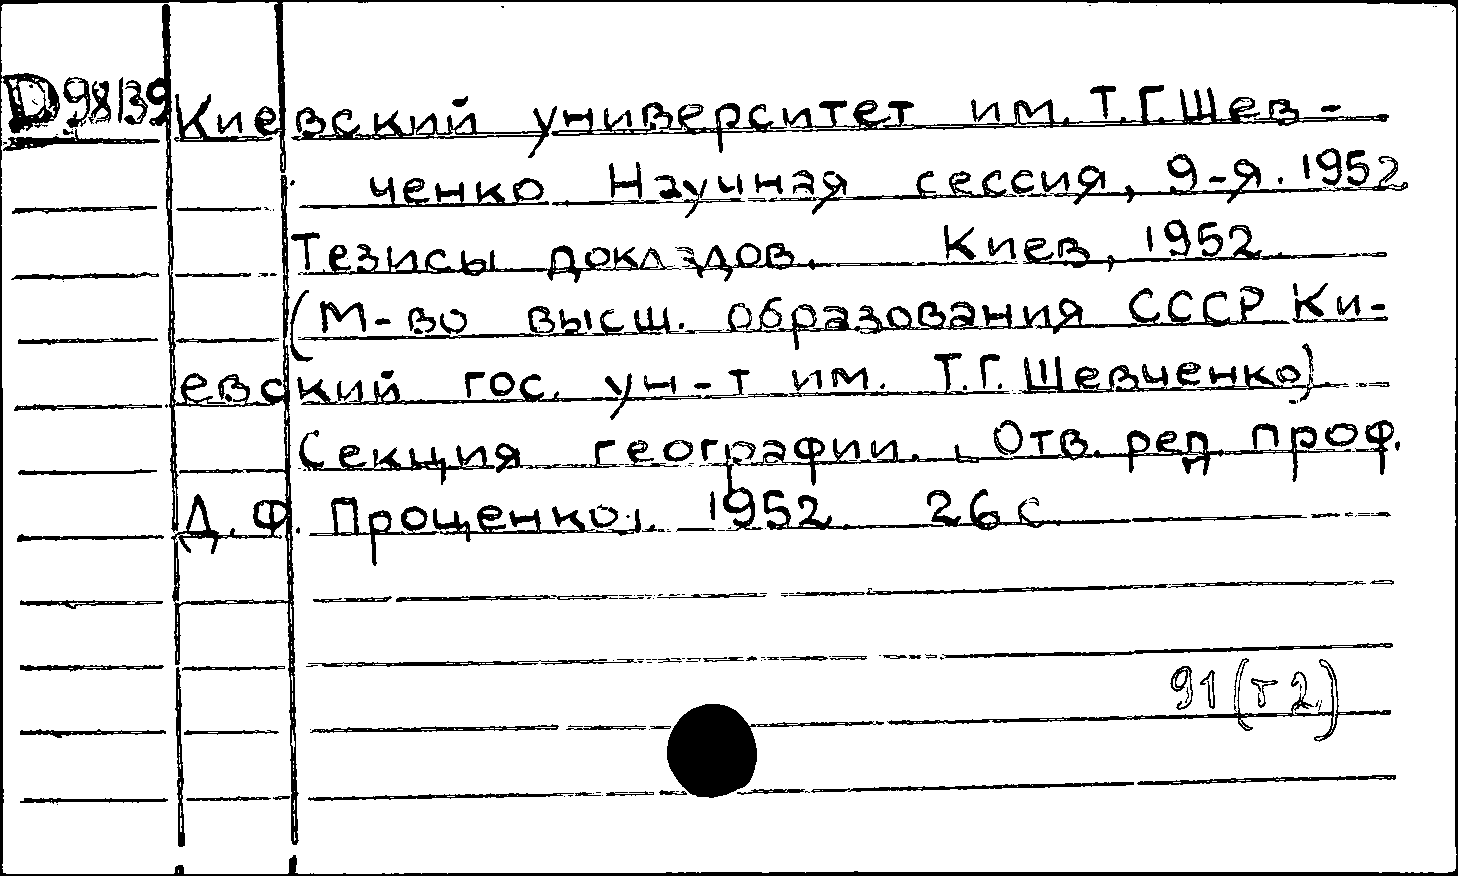 D 98/39 Киевский университет им. Т.Г.Шев-
ченко Научная сессия, 9-я. 1952
Тезисы докладов. Киев, 1952.
(М-во высш. образования СССР Ки-
евский гос. ун-т им. Т.Г.Шевченко)
Секция географии. Отв. ред. проф.
Д.Ф. Проценко. 1952. 26 с.
91(т2)